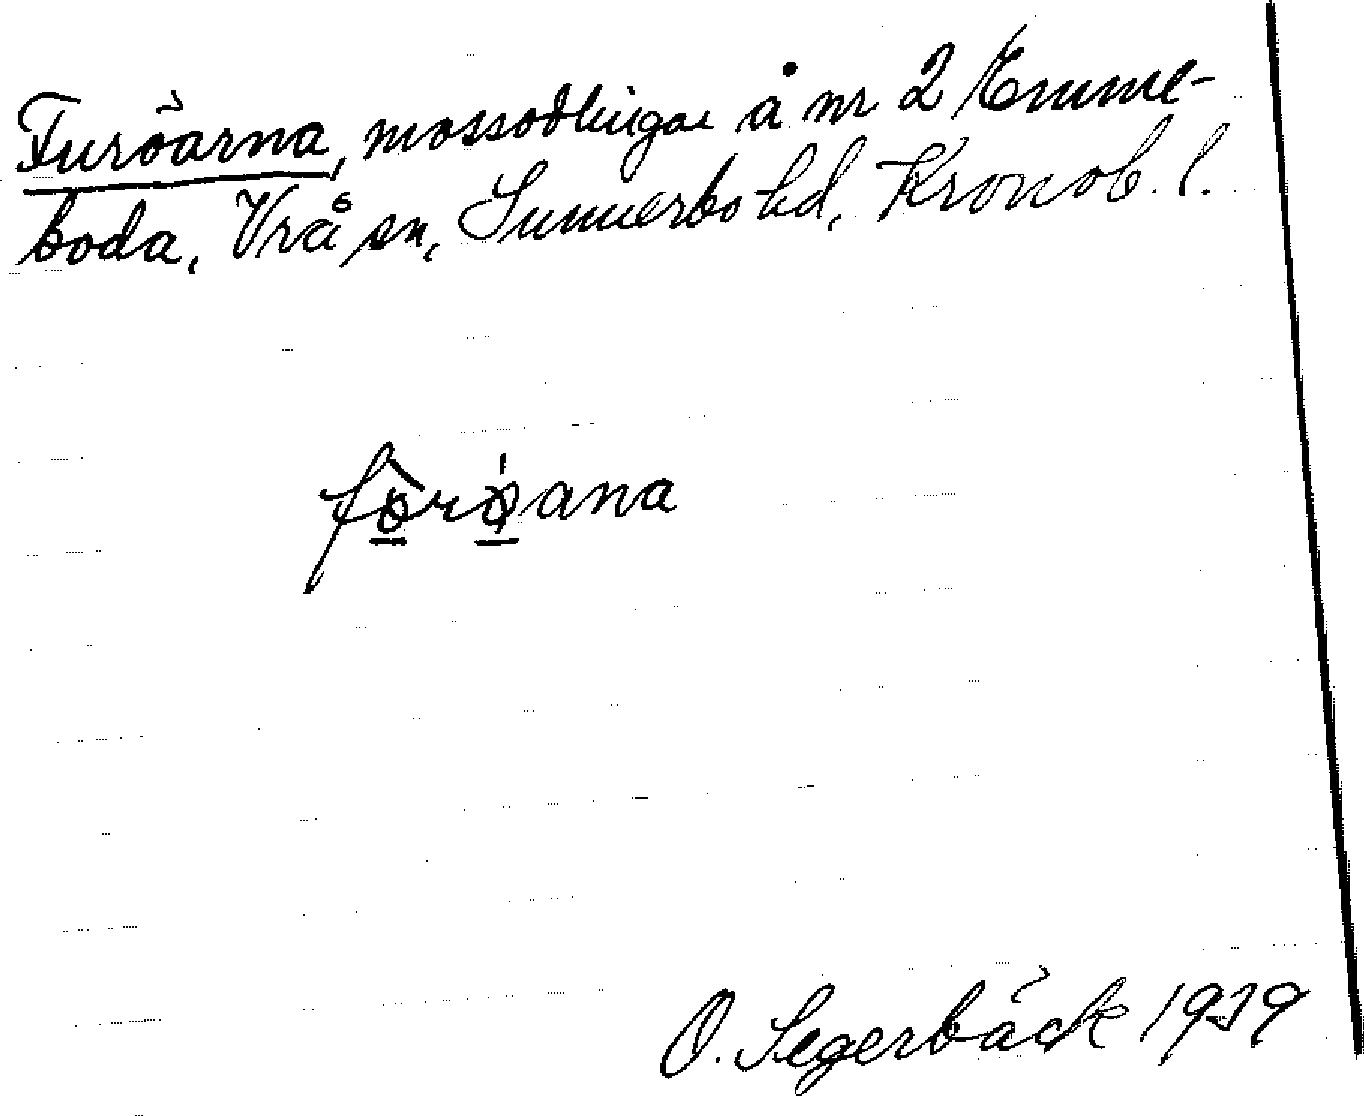 Furöarna, mossodlingar å nr 2 Emme-
boda, Vrå sn, Sunnerbo hd, Kronob. l.
föröana
O. Segerbäck 1939